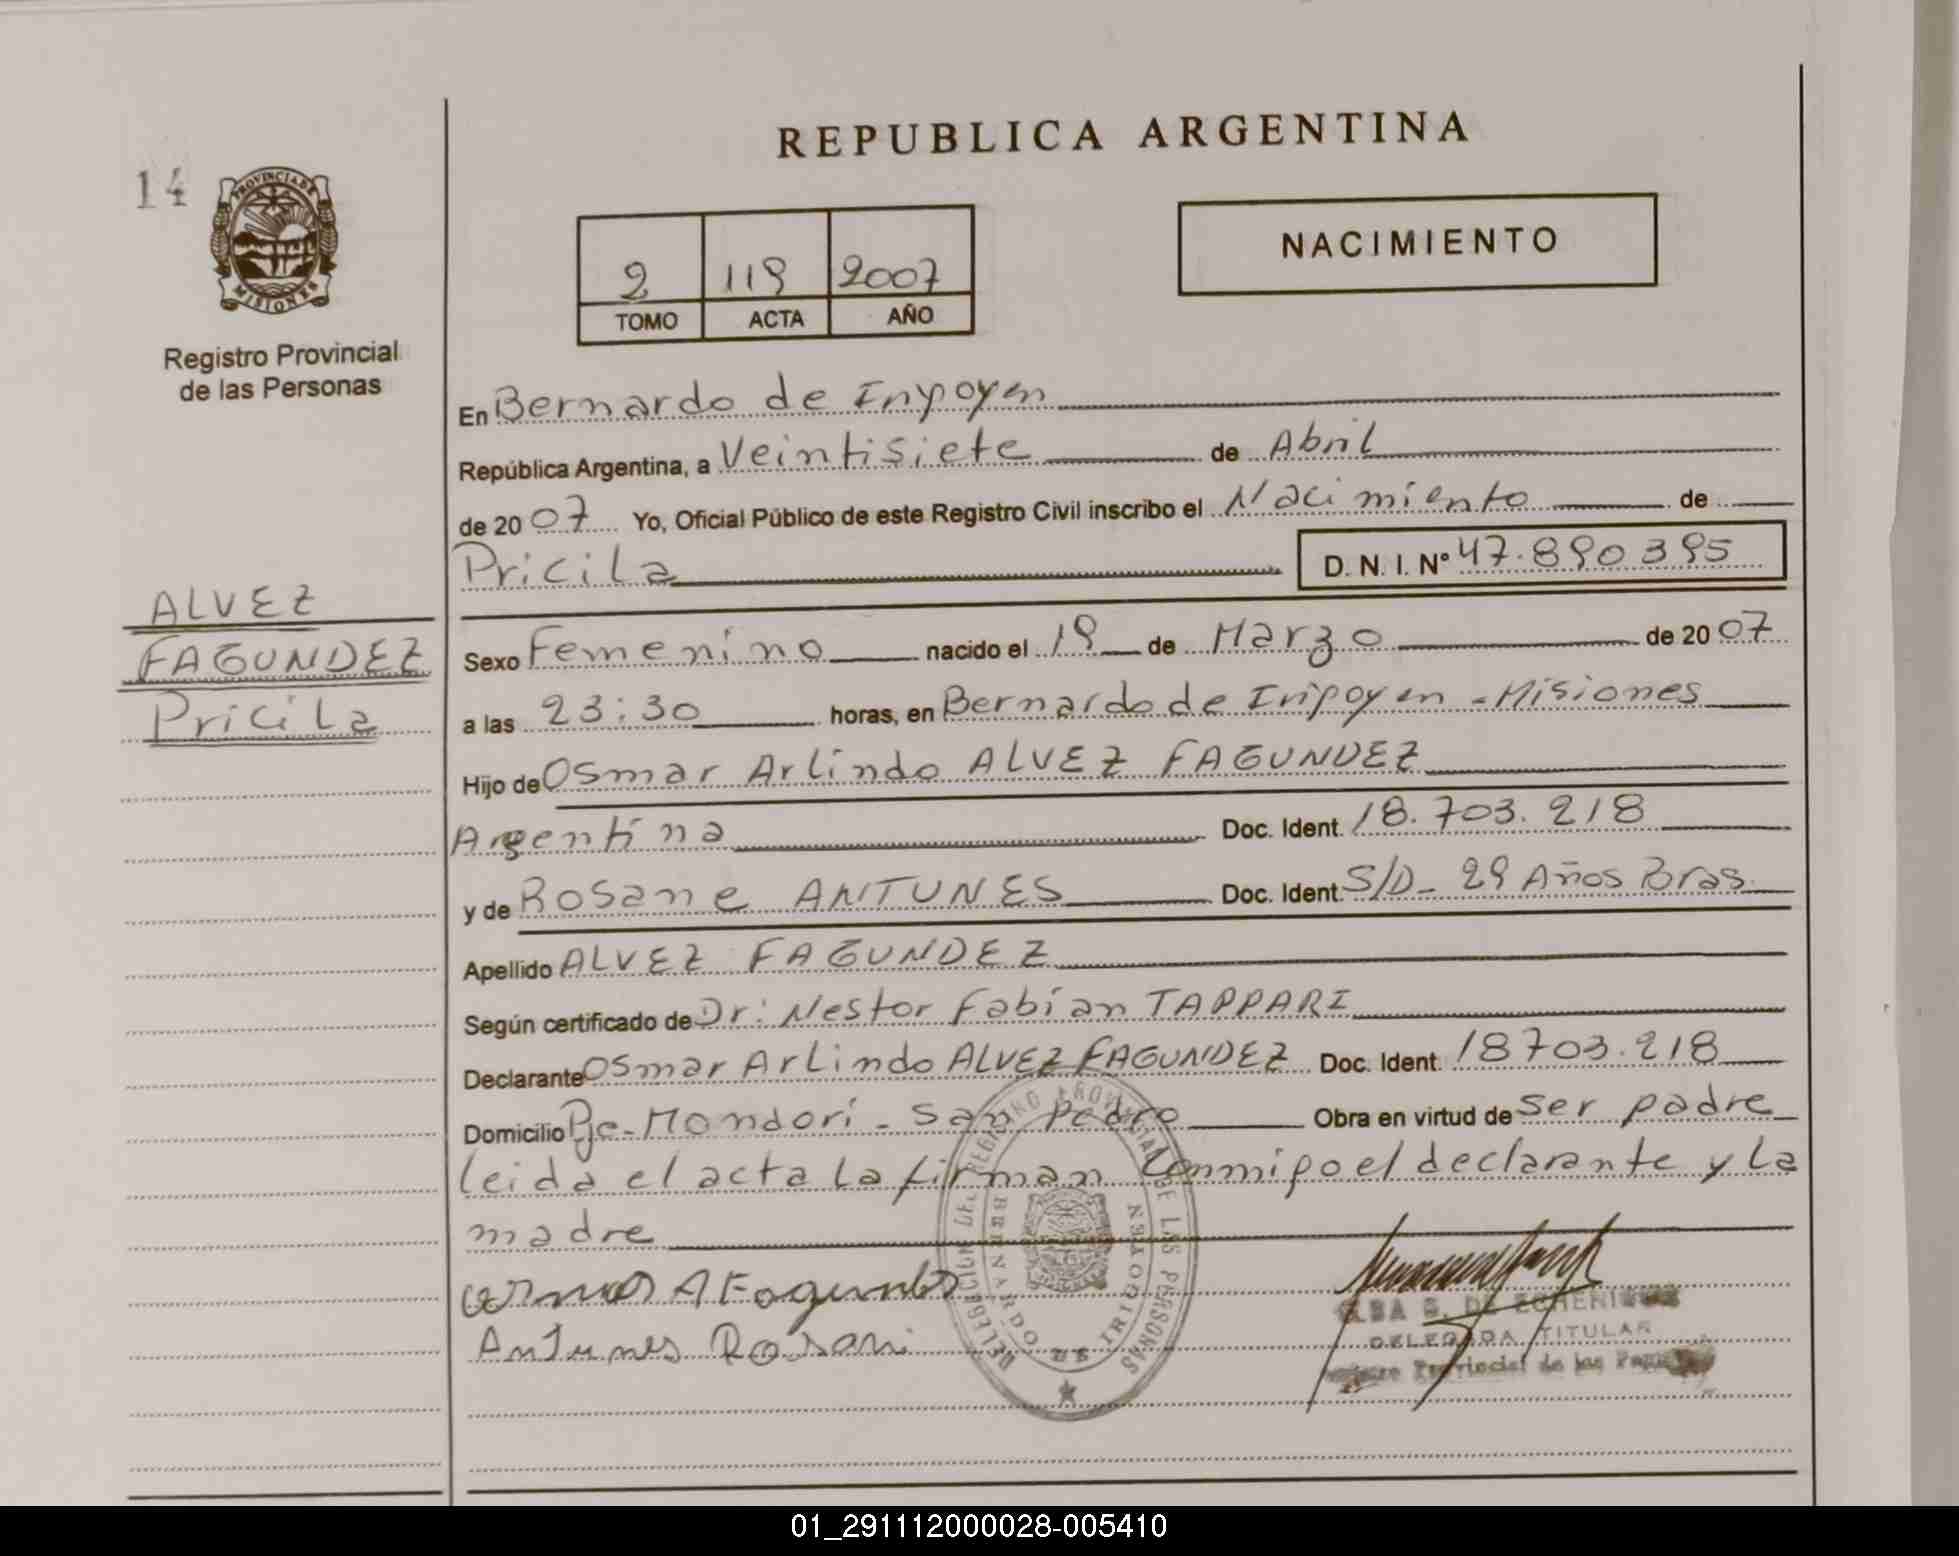 REPUBLICA ARGENTINA
14
PROVINCIA DE
MISIONES
Registro Provincial
de las Personas
2 119 2007
TOMO ACTA AÑO
NACIMIENTO
En Bernardo de Irigoyen
República Argentina, a Veintisiete de Abril
de 2007 Yo, Oficial Público de este Registro Civil inscribo el Nacimiento de
Pricila D. N. I. Nº 47.890395
ALVEZ
FAGUNDEZ
Pricila
Sexo Femenino nacido el 19 de Marzo de 2007
a las 23:30 horas, en Bernardo de Irigoyen - Misiones
Hijo de Osmar Arlindo ALVEZ FAGUNDEZ
Argentina Doc. Ident. 18.703.218
y de Rosane ANTUNES Doc. Ident. S/D - 29 Años Bras.
Apellido ALVEZ FAGUNDEZ
Según certificado de Dr: Nestor Fabian TAPPARI
Declarante Osmar Arlindo ALVEZ FAGUNDEZ Doc. Ident. 18703.218
Domicilio Pje - Mondori - San Pedro Obra en virtud de ser padre
leida el acta la firman Conmigo el declarante y la
madre
A Fagundes
Antunes Rosani
DELEGACION DEL REGISTRO PROVINCIAL DE LAS PERSONAS
BERNARDO DE IRIGOYEN
ELBA G. DE ECHENIQUE
DELEGADA TITULAR
Provincial de las
01_291112000028-005410